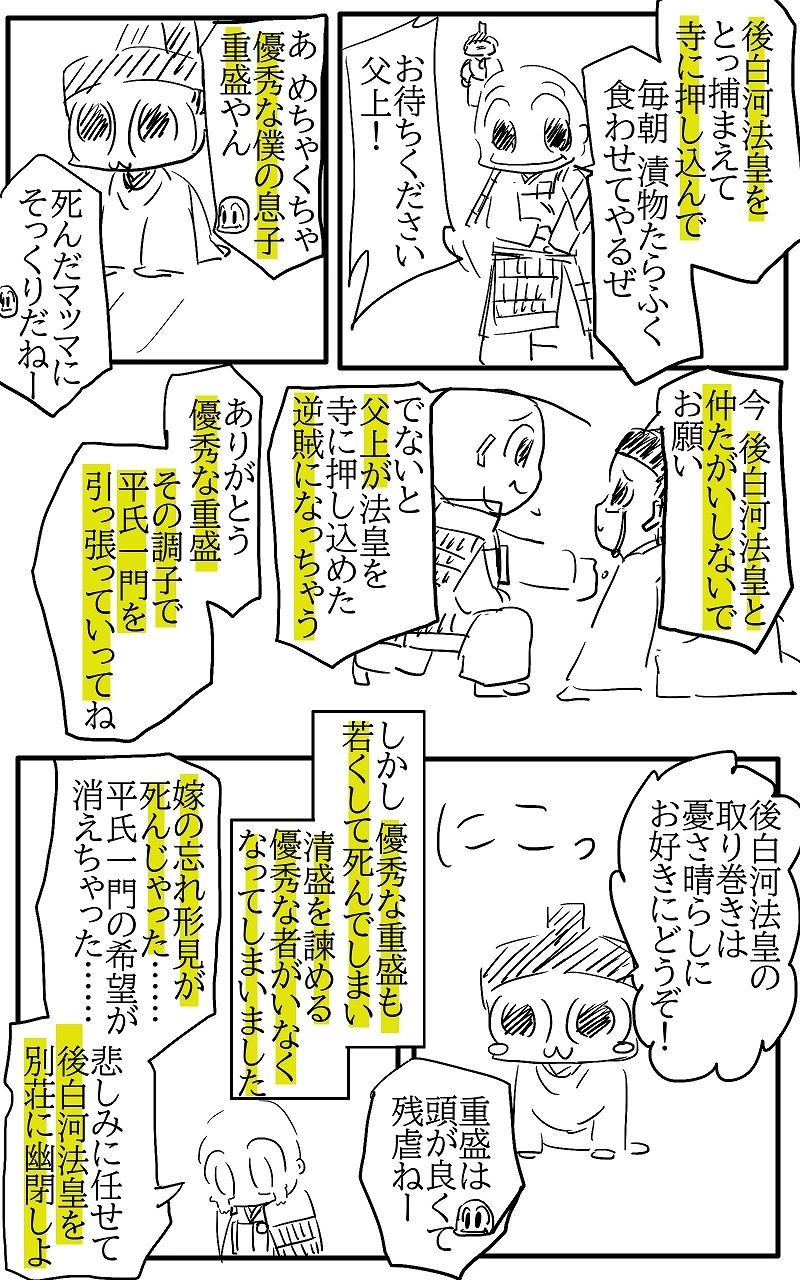 後白河法皇を
とっ捕まえて
寺に押し込んで
毎朝 漬物たらふく
食わせてやるぜ
お待ちください
父上！
あ めちゃくちゃ
優秀な僕の息子
重盛やん
死んだマツマに
そっくりだねー
今 後白河法皇と
仲たがいしないで
お願い
でないと
父上が法皇を
寺に押し込めた
逆賊になっちゃう
ありがとう
優秀な重盛
その調子で
平氏一門を
引っ張っていってね
後白河法皇の
取り巻きは
憂さ晴らしに
お好きにどうぞ！
重盛は
頭が良くて
残虐ねー
しかし 優秀な重盛も
若くして死んでしまい
清盛を諫める
優秀な者がいなく
なってしまいました
嫁の忘れ形見が
死んじゃった……
平氏一門の希望が
消えちゃった……
悲しみに任せて
後白河法皇を
別荘に幽閉しよ